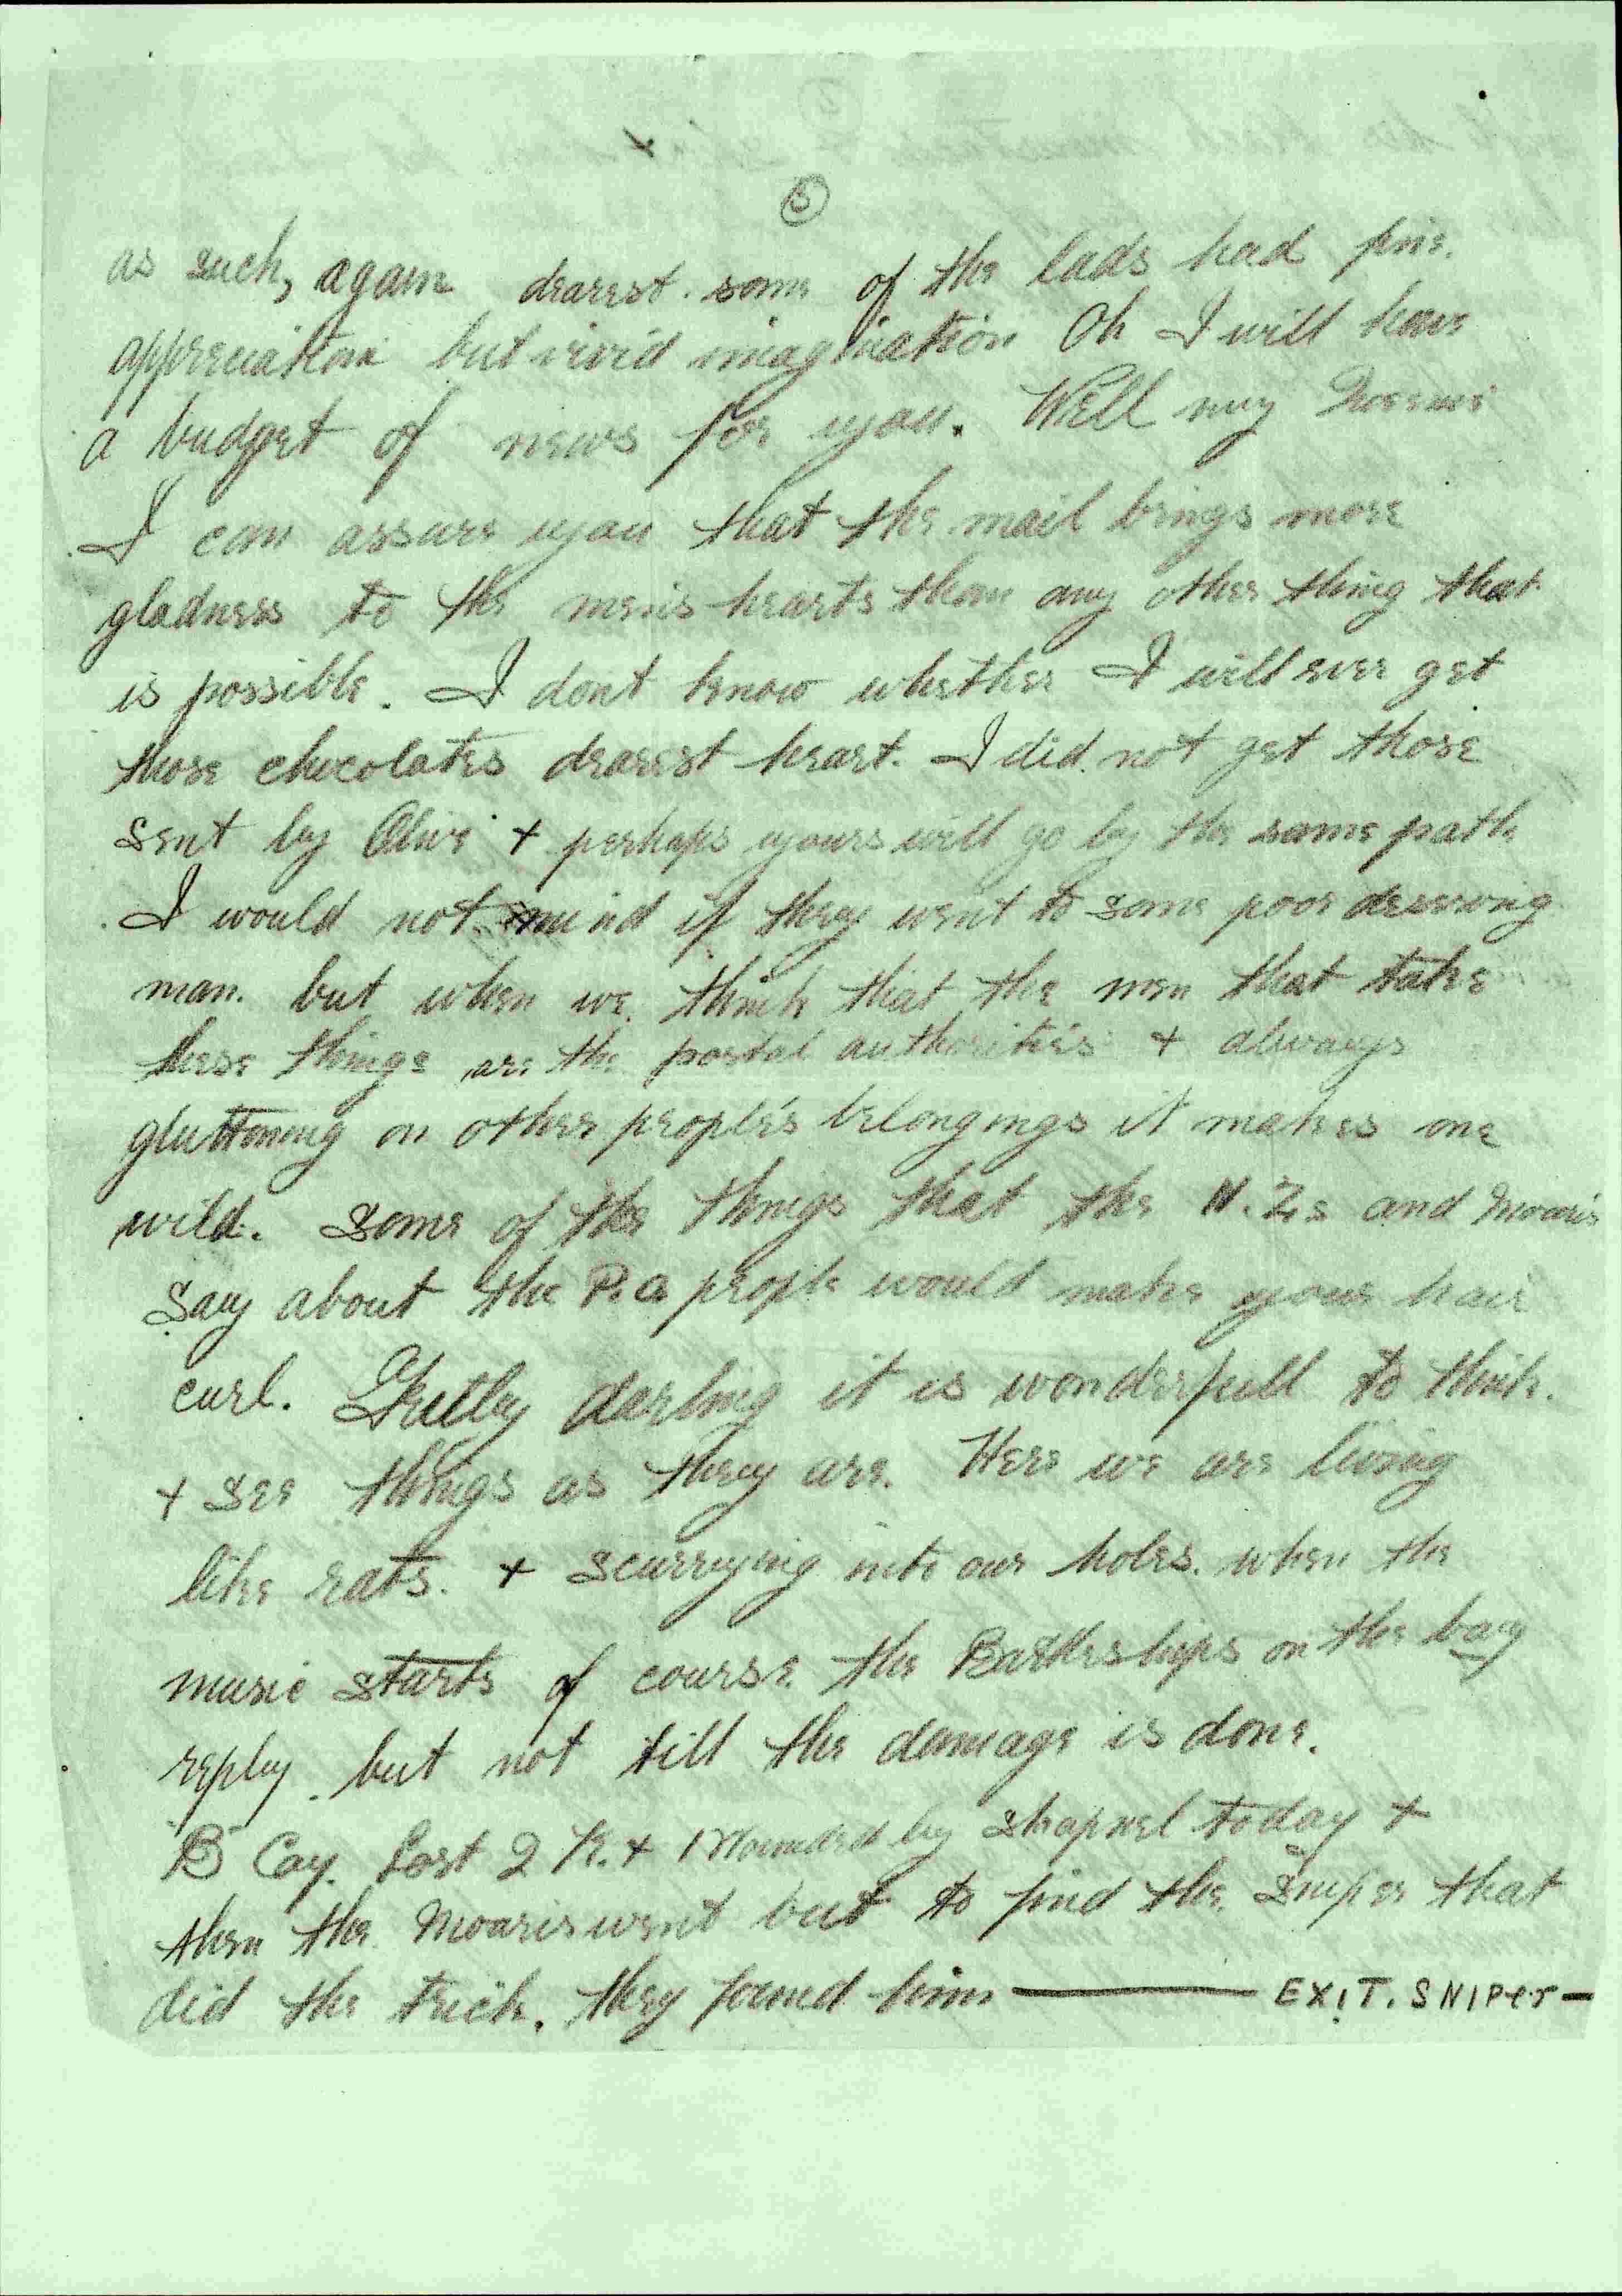 5
as such, again dearest. some of the lads had fine.
appreciation but vivid imagination Oh I will have
a budget of news for you. Well my
I can assure you that the mail brings more
gladness to the men's hearts than any other thing that
is possible. I dont know whether I will ever get
those chocolates dearest heart. I did not get those
sent by Olive + perhaps yours will go by the same path
I would not mind if they went to some poor deserving
man. but when we think that the men that take
these things are the postal authorities + always
gluttoning on other people's belongings it makes one
wild. Some of the things that the N.Zs and Moaris
say about the P.O people would make your hair
curl. darling it is wonderfull to think.
+ see things as they are. Here we are living
like rats. + scurrying into our holes. when the
music starts of course. the Battleships on the bay
reply. but not till the damage is done.
B Coy. Lost 2 K. + 1 Wounded by shrapnel today +
then the Moaris went out to find the Sniper that
did the trick. they found him — EXIT. SNIPer —